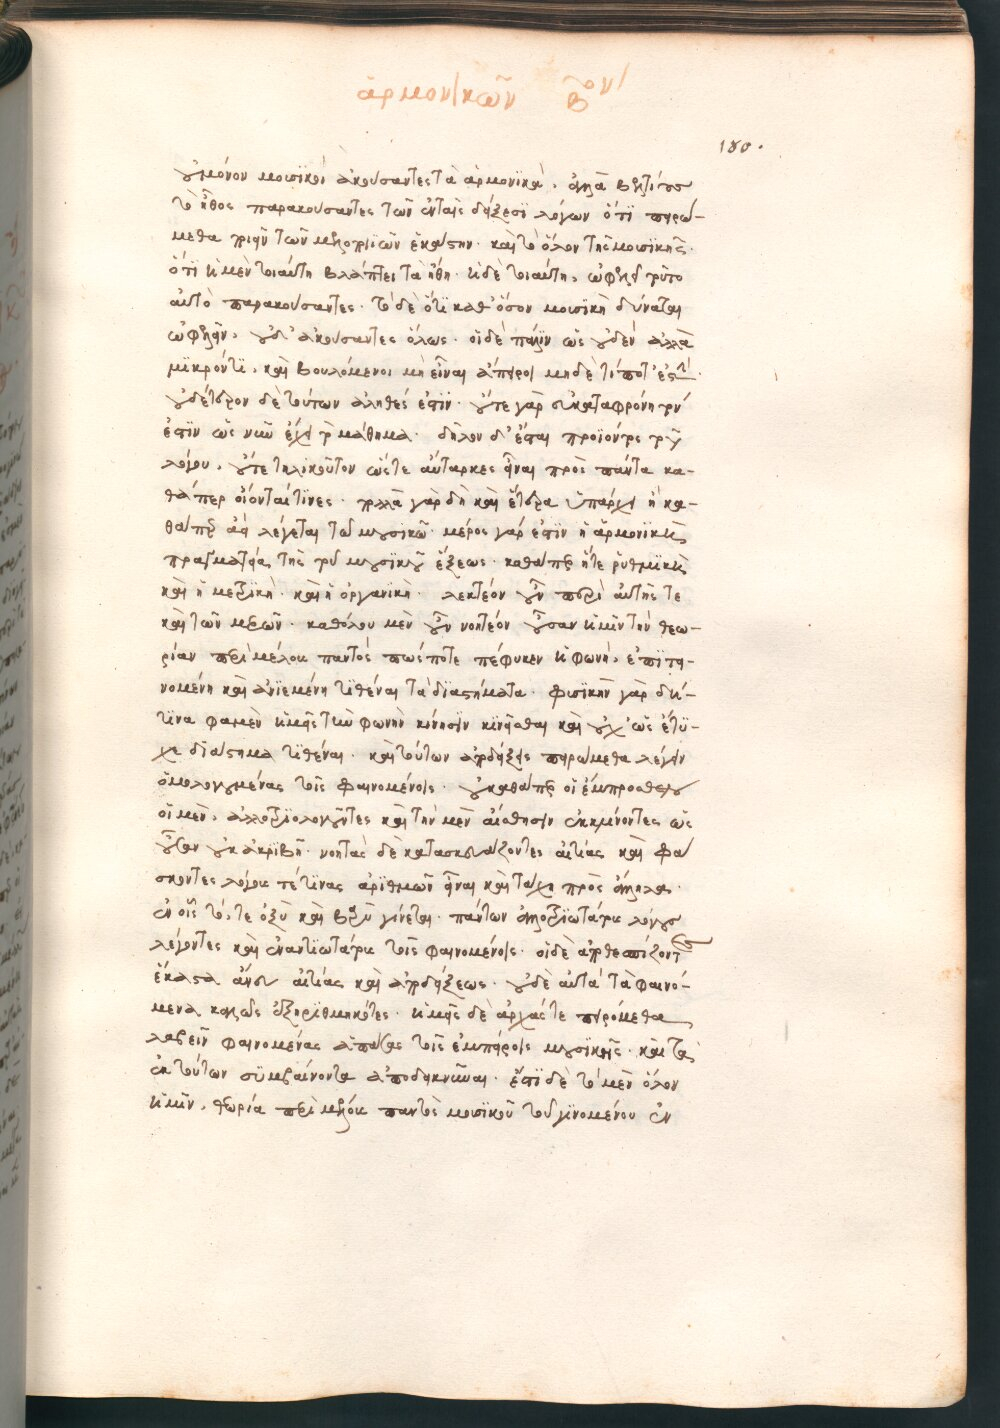 ἁρμονικῶν βον
180.
οὐ μόνον μουσϊκοὶ ἀκούσαντες τὰ ἁρμονϊκά. ἀλλὰ βελτίους
τὸ ἦθος παρακούσαντες τῶν ἐν ταῖς δείξεσϊ λόγων ὅτϊ πειρώ-
μεθα ποιεῖν τῶν μελοποιϊῶν ἑκάστην. καὶ τὸ ὅλον τῆς μουσϊκῆς.
ὅτϊ ἡ μὲν τοιαύτη βλάπτει τὰ ἤθη. ἡ δὲ τοιαύτη, ὠφελεῖ τοῦτο
αὐτὸ παρακούσαντες. τὸ δὲ ὅτϊ καθ' ὅσον μουσϊκὴ δύναται
ὠφελεῖν, οὐδ' ἀκούσαντες ὅλως. οἱ δὲ πάλϊν ὡς οὐδὲν ἀλλὰ
μϊκρόν τϊ, καὶ βουλόμενοι μὴ εἶναι ἄπειροι μηδὲ τί ποτ' ἐστί.
οὐδέτερον δὲ τούτων ἀληθές ἐστϊν. οὔτε γὰρ εὐκαταφρόνητον
ἐστϊν ὡς νῦν ἔχει τὸ μάθημα. δῆλον δ' ἔσται προϊόντος τοῦ
λόγου. οὔτε τηλικοῦτον ὥστε αὔταρκες εἶναι πρὸς πάντα κα-
θάπερ οἴονταί τϊνες. πολλὰ γὰρ δὴ καὶ ἕτερα ὑπάρχει ἢ κα-
θάπερ ἀεὶ λέγεται τῷ μουσικῷ. μέρος γάρ ἐστϊν ἡ ἁρμονϊκὴ
πραγματεία τῆς τοῦ μουσϊκοῦ ἕξεως. καθάπερ ἥτε ῥυθμϊκὴ
καὶ ἡ μετρϊκὴ. καὶ ἡ ὀργανϊκὴ. λεκτέον οὖν περὶ αὐτῆς τε
καὶ τῶν μερῶν. καθόλου μὲν οὖν νοητέον οὖσαν ἡμῖν τὴν θεω-
ρίαν περὶ μέλους παντός πως ποτε πέφυκεν ἡ φωνὴ, ἐπϊτει-
νομένη καὶ ἀνϊεμένη τϊθέναι τὰ δϊαστήματα. φυσϊκὴν γὰρ δή-
τϊνα φαμὲν ἡμεῖς τὴν φωνὴν κίνησϊν κϊνεῖσθαι καὶ οὐχ ὡς ἔτϋ-
χε δϊάστημα τϊθέναι. καὶ τούτων ἀποδείξεις πειρώμεθα λέγειν
ὁμολογουμένας τοῖς φαινομένοις. οὐ καθάπερ οἱ ἔμπροσθεν
οἱ μὲν, ἀλλοτρϊολογοῦντες καὶ τὴν μὲν αἴσθησϊν ἐκκλίνοντες ὡς
οὖσαν οὐκ ἀκρϊβῆ. νοητὰς δὲ κατασκευάζοντες αἰτίας καὶ φά
σκοντες λόγους τέ τϊνας ἀρϊθμῶν εἶναι καὶ τάχη πρὸς ἄλληλα.
ἐν οἷς τό, τε ὀξὺ καὶ βαρὺ γίνεται. πάντων ἀλλοτρϊωτάτους λόγους
λέγοντες καὶ ἐναντϊωτάτους τοῖς φαινομένοις. οἱ δὲ ἀποθεσπίζοντες
ἕκαστα ἄνευ αἰτίας καὶ ἀποδείξεως. οὐδὲ αὐτὰ τὰ φαινό-
μενα καλῶς ἐξηρϊθμηκότες. ἡμεῖς δὲ ἀρχάς τε πειρόμεθα
λαβεῖν φαινομένας ἁπάσας τοῖς ἐμπείροις μουσϊκῆς. καὶ τὰ
ἐκ τούτων συμβαίνοντα ἀποδεικνύναι. ἔστϊ δὲ τὸ μὲν ὅλον
ἡμῖν, θεωρία περὶ μέλους παντὸς μουσϊκοῦ τοῦ γϊνομένου ἐν